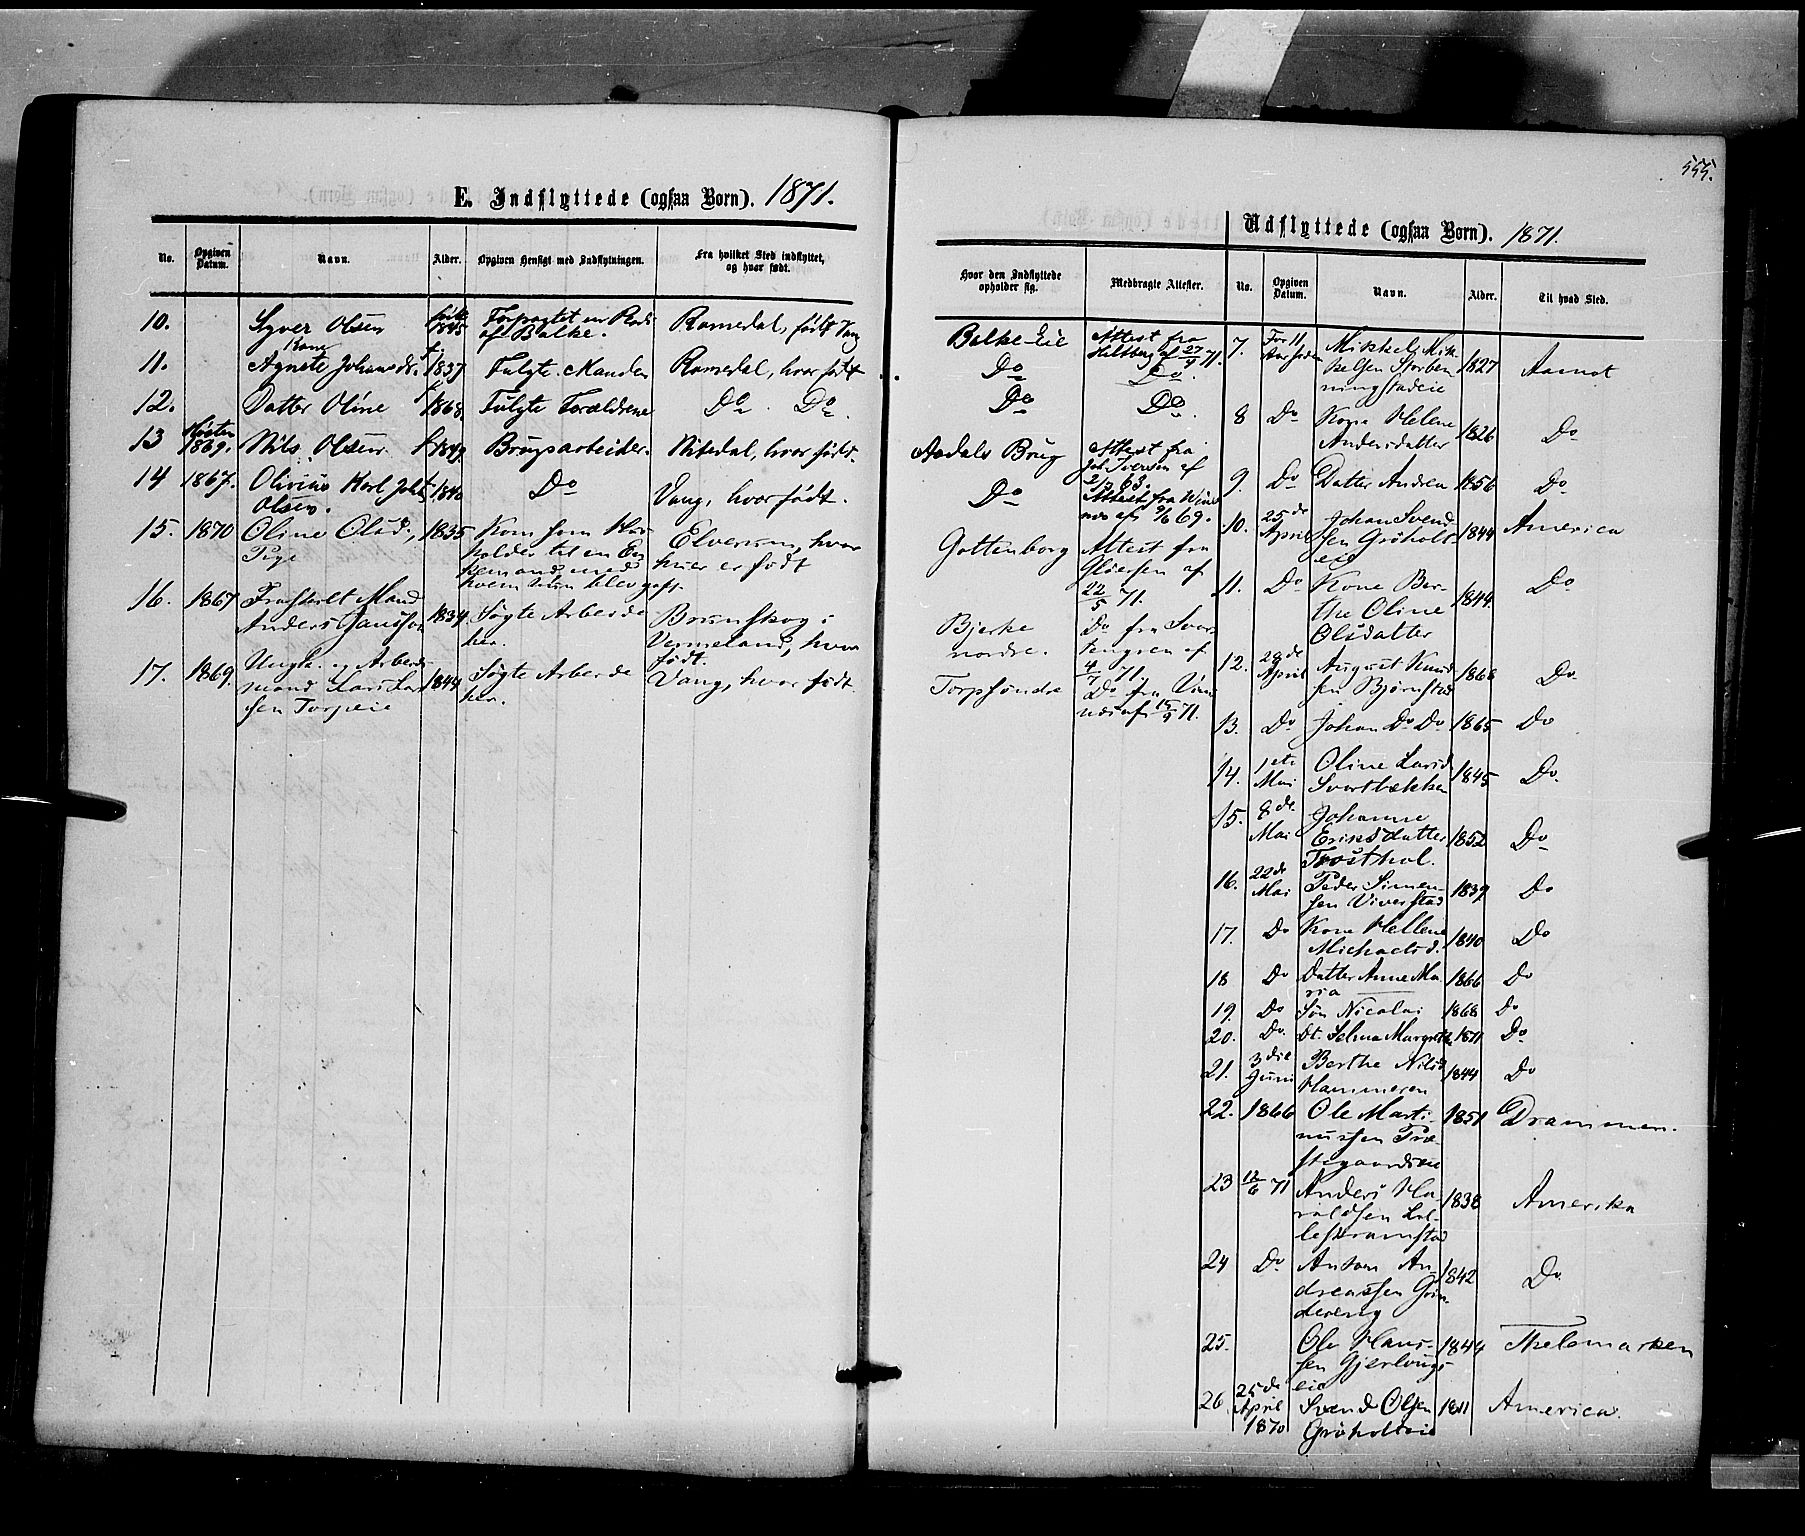 555.
E. Indflyttede (ogsaa Børn). 1871.
No. Opgiven Datum. Navn. Alder. Opgiven Hensigt med Indflytningen. Fra hvilket Sted indflyttet, og hvor født.
Hvor den Indflyttede opholder sig. Medbragte Attester.
10. Syver Olsen født 1845 Forpagtet en Plads af Balke. Romedal, født Vang Balke-Eie Attest fra 71.
11. Kone Agnete Johansdr. f 1837 Fulgte Manden Romedal, hvor født Do Do.
12. Datter Oline f 1868 Fulgte Forældrene Do. Do. Do Do.
13 Høsten 1869. Nils Olsen f 1849 Brugsarbeider. Nitedal, hvor født. Aadals Brug Attest fra Joh. Iversen af 63.
14 1867. Karl Joh. Olsen. Do Vang, hvor født. Do Attest fra af 9/6 69.
15. 1870 Oline Olsd., Pige 1835 Kom som Hus-
holder til en En-
kemand, med
hvem hun blev gift. Elverum, hvor
hun er født Gottenborg Attest fra
af
22/5 71.
16. 1867 Fraskilt Mand
Anders Jansson 1834 Søgte Arbeide
her. Brunskog i
Vermeland, hvor
født. Bjerke
nordre. Do fra Svar-
tengren af
4/7 71.
17. 1869. Ungk. og Arbeids-
mand Lars Lar-
sen Torpeie 1844 Søgte Arbeide
her. Vang, hvor født. Torp søndre Do fra
af 15/9 71.
Udflyttede (ogsaa Børn). 1871.
No. Opgiven Datum. Navn. Alder. Til hvad Sted.
7. For 11 Aar siden Mikkel Mik-
kelsen Storben-
ningstadeie 1827 Aamot
8 Do Kone Helene
Andersdatter 1826 Do
9. Do Datter Andrea 1856 Do
10. 25de April Johan Svend-
sen Grøholt-
eie 1844 America
11. Do Kone Ber-
the Oline
Olsdatter 1844. Do
12. 28de April August Knud-
sen Bjørnstad 1868 Do
13. Do Johan Do Do 1865 Do
14. 1ste Mai Oline Larsd.
Svartbækken 1845 Do.
15. 8de Mai Johanne
Eriksdatter
Frosthol. 1852 Do
16. 22de Mai Peder Simen-
sen Viverstad 1839 Do
17. Do Kone Hellene
Michaelsd. 1840 Do
18 Do Datter Anne Ma-
ria 1866 Do
19. Do Søn Nicolai 1868 Do
20. Do. Dt. Selma Margrethe 1871 Do
21. 3die Juni Berthe Nilsd.
Hammeren 1844 Do
22. 1866 Ole Marti-
nussen Præ-
stegaardseie 1851 Drammen.
23 12/6 71 Anders Ha-
raldsen Lil-
leskramstad 1838 Amerika
24 Do Anton An-
dreassen Grin-
dereng 1842 Do
25. Ole Hans-
sen Gjerlungs-
eie 1844 Thelemarken
26. 25de April 1870 Svend Olsen
Grøholteie 1811 America.